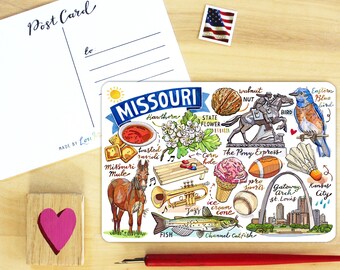 Post Card
to
MADE BY
MISSOURI
Hawthorn
STATE
FLOWER
walnut
NUT
Eastern
Blue
bird
toasted
ravioli
The Pony Express
Missouri
Mule
corn
dog
jazz
ice
cream
cone
pro
sports
Gateway
Arch
St. Louis
Kansas
City
FISH
Channel Catfish